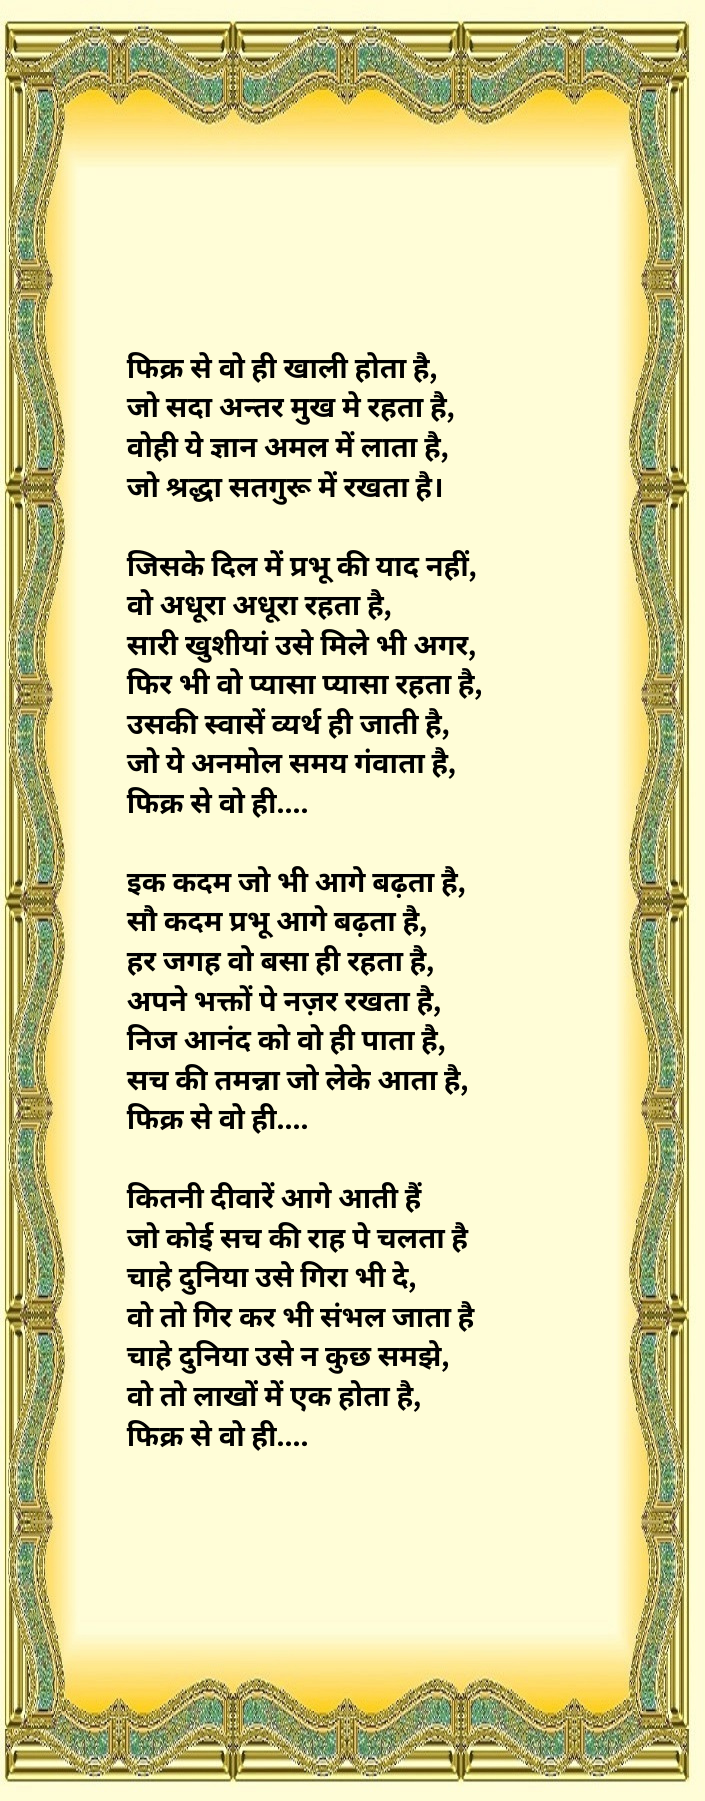 फिक्र से वो ही खाली होता है,
जो सदा अन्तर मुख मे रहता है,
वोही ये ज्ञान अमल में लाता है,
जो श्रद्धा सतगुरू में रखता है।
जिसके दिल में प्रभू की याद नहीं,
वो अधूरा अधूरा रहता है,
सारी खुशीयां उसे मिले भी अगर,
फिर भी वो प्यासा प्यासा रहता है,
उसकी स्वासें व्यर्थ ही जाती है,
जो ये अनमोल समय गंवाता है,
फिक्र से वो ही....
इक कदम जो भी आगे बढ़ता है,
सौ कदम प्रभू आगे बढ़ता है,
हर जगह वो बसा ही रहता है,
अपने भक्तों पे नज़र रखता है,
निज आनंद को वो ही पाता है,
सच की तमन्ना जो लेके आता है,
फिक्र से वो ही....
कितनी दीवारें आगे आती हैं
जो कोई सच की राह पे चलता है
चाहे दुनिया उसे गिरा भी दे,
वो तो गिर कर भी संभल जाता है
चाहे दुनिया उसे न कुछ समझे,
वो तो लाखों में एक होता है,
फिक्र से वो ही....